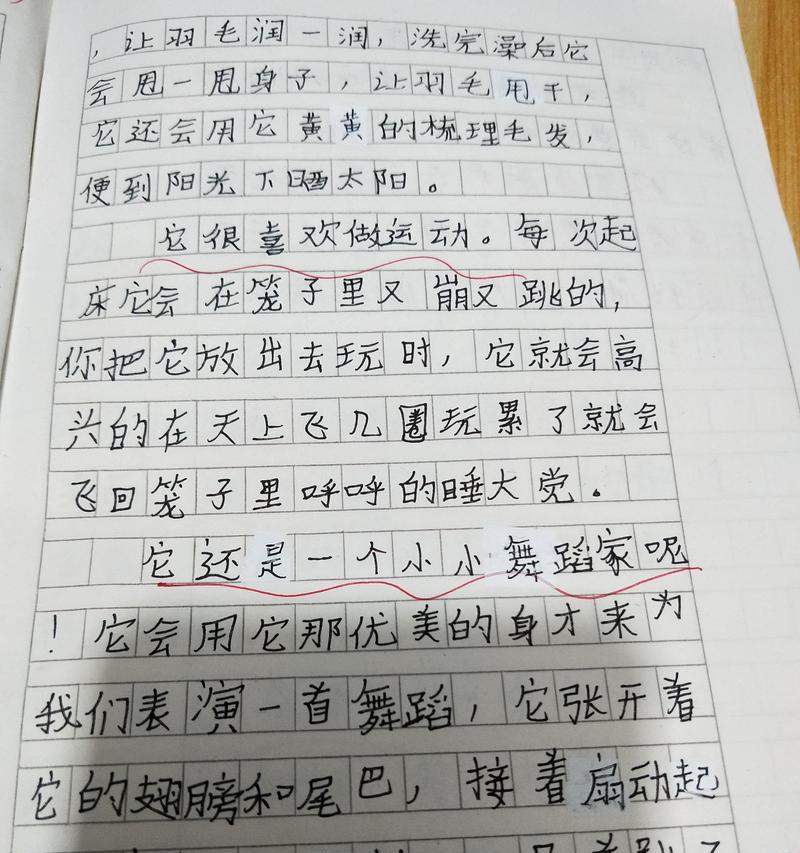 ，让羽毛润一润，洗完澡后它
会甩一甩身子，让羽毛甩干，
它还会用它黄黄的梳理毛发，
便到阳光下晒太阳。
它很喜欢做运动。每次起
床它会在笼子里又崩又跳的，
你把它放出去玩时，它就会高
兴的在天上飞几圈玩累了就会
飞回笼子里呼呼的睡大觉。
它还是一个小小舞蹈家呢
！它会用它那优美的身才来为
我们表演一首舞蹈，它张开着
它的翅膀和尾巴，接着扇动起